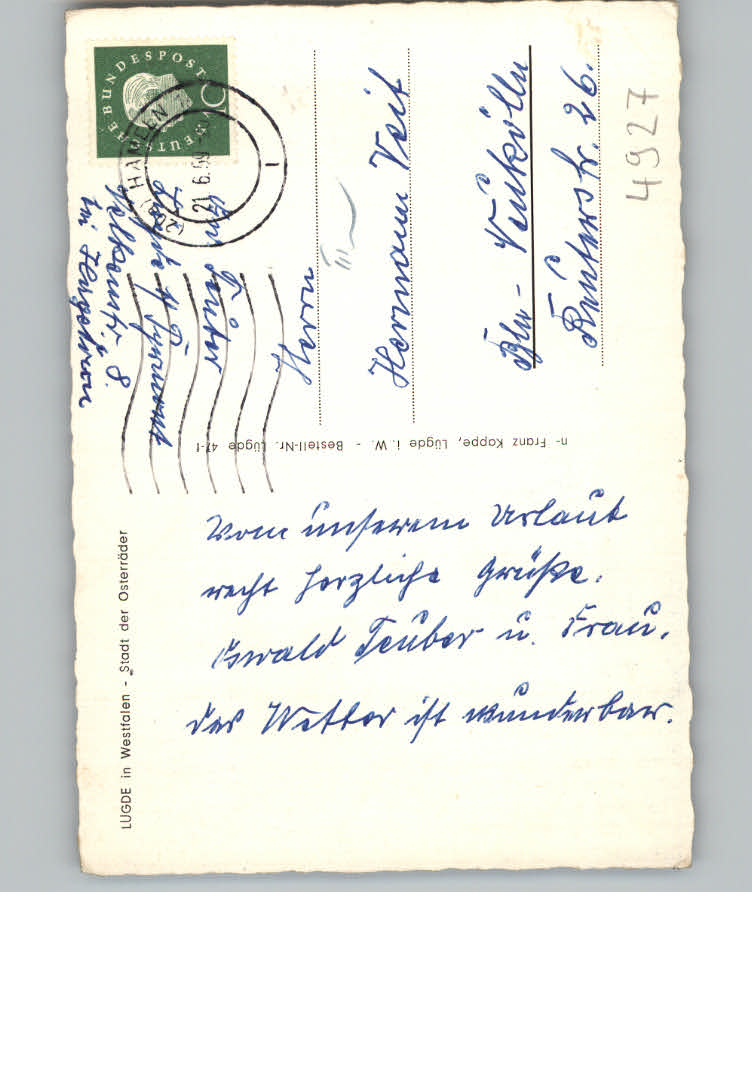 LÜGDE in Westfalen - „Stadt der Osterräder
Vom unserem Urlaub
recht herzliche Grüße.
Oswald Teuber u. Frau.
das Wetter ist wunderbar.
DEUTSCHE BUNDESPOST
HAMELN
21.6.60
1
Teuber
Pyrmont
8.
bei
Herrn
Hermann Veit
Bln- Neukölln
Reuterstr. 26.
4927
n- Franz Kappe, Lügde i. W. - Bestell-Nr. Lügde 47-f